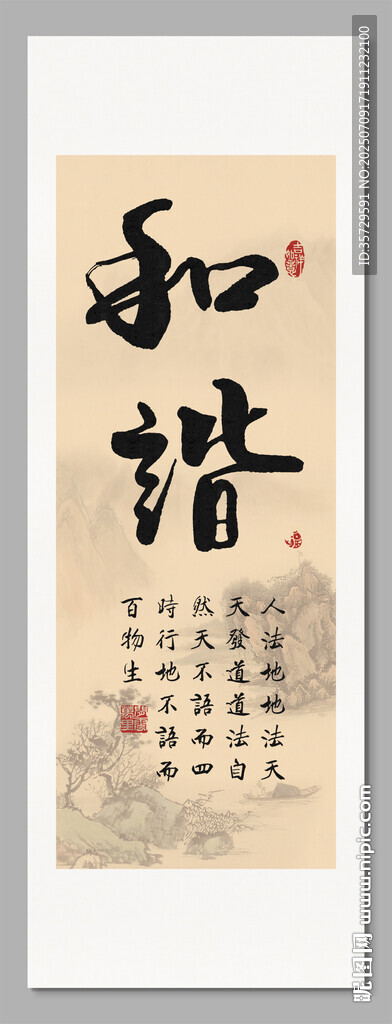 和
諧
人法地地法天
天發道道法自
然天不語而四
時行地不語而
百物生
ID:35729591 NO:20250709171911232100
昵图网 www.nipic.com